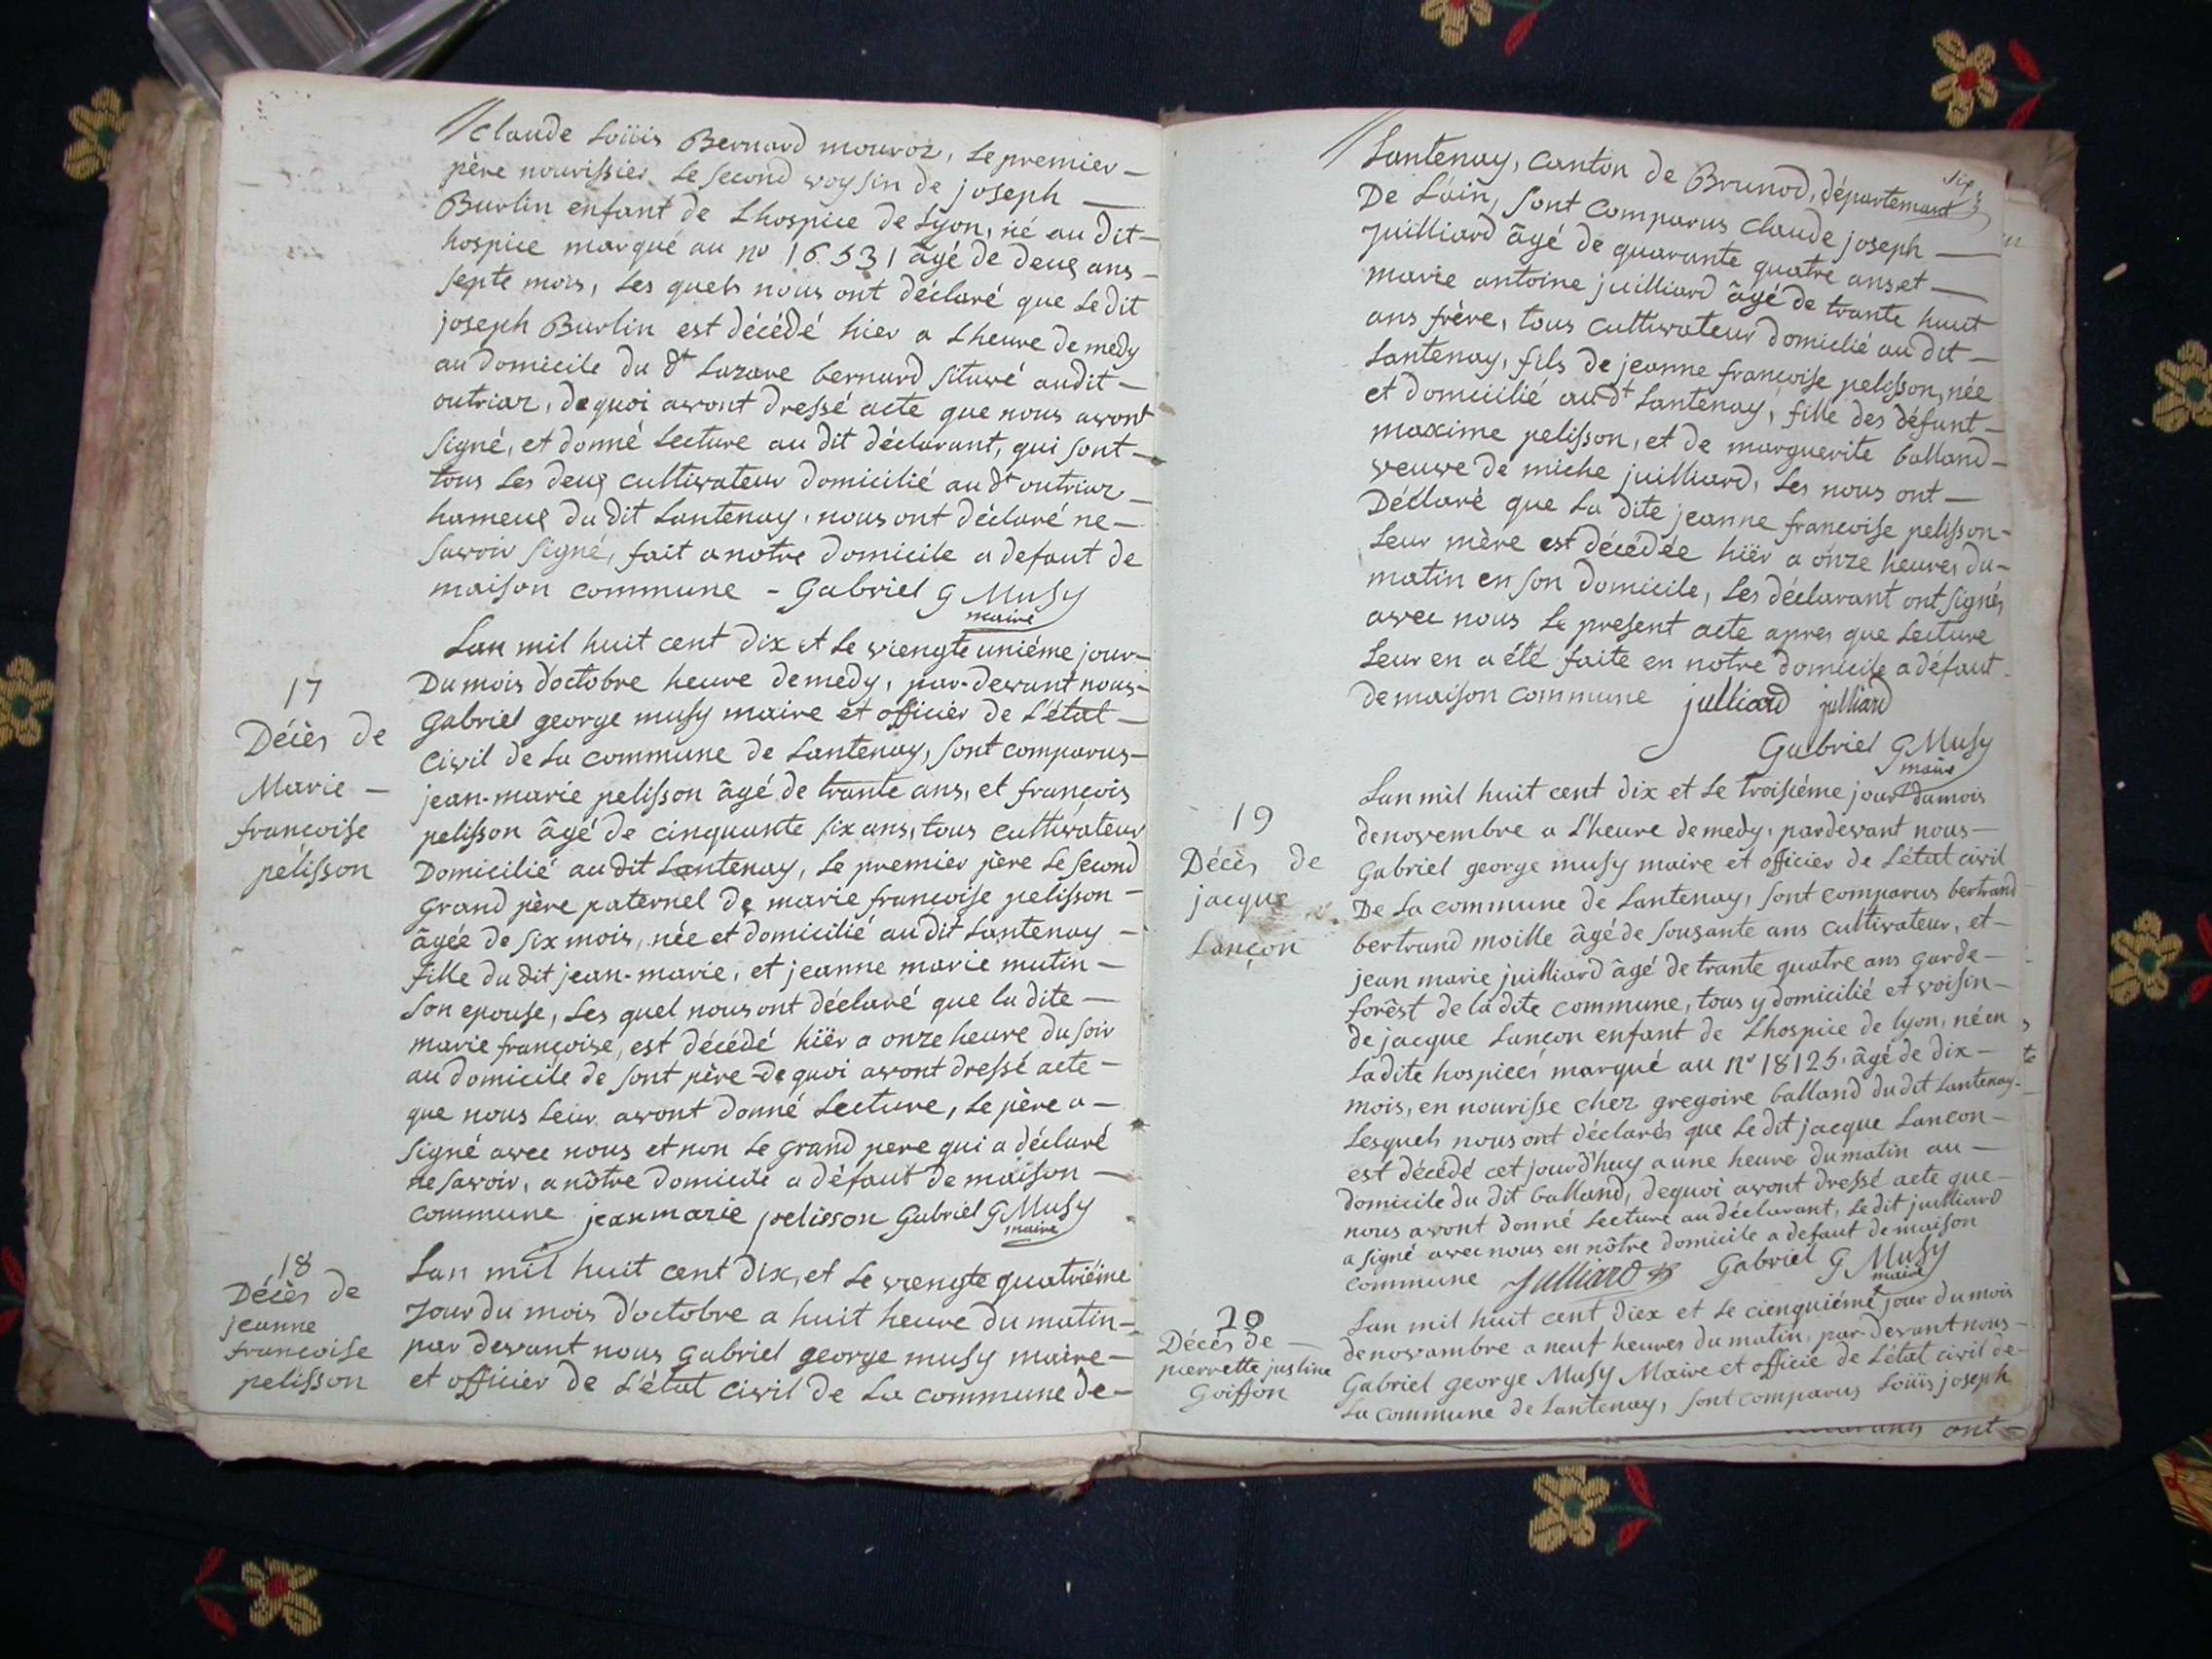 Claude Loüis Bernard mouroz, Le premier
père nourissier Le second voysin de joseph
Burlin enfant de Lhospice de Lyon, né au dit
hospice marqué au no 16.531 âgé de deux ans
septe mois, Les quels nous ont déclaré que Le dit
joseph Burlin est décédé hier a Lheure de medy
au domicile du dt Lazare bernard situvé audit
outriaz, de quoi avont dressé acte que nous avont
signé, et donné Lecture au dit déclarant, qui sont
tous Les deux cultivateur domicilié au dt outriaz
hameux du dit Lantenay, nous ont déclaré ne
savoir signé, fait a notre domicile a defaut de
maison commune - Gabriel G Musy
maire
Lan mil huit cent dix et Le viengte uniéme jour
Du mois d'octobre heure de medy, par-devant nous
Gabriel george musy maire et officier de L'état
civil de La commune de Lantenay, sont comparus
jean-marie pelisson âgé de trante ans, et françois
pelisson âgé de cinquante six ans, tous cultivateur
Domicilié au dit Lantenay, Le premier père Le second
Grand père paternel de marie francoise pelisson
âgée de six mois, née et domicilié au dit Lantenay
fille du dit jean-marie, et jeanne marie mutin
Son epouse, Les quel nous ont déclaré que la dite
marie françoise, est décédé hiër a onze heure du soir
au domicile de sont père De quoi avont dressé acte
que nous Leur avont donné Lecture, Le père a
signé avec nous et non Le grand pere qui a déclaré
ne savoir, a nôtre domicile a défaut de maison
commune jean marie pelisson Gabriel G Musy
maire
17
Décès de
Marie
françoise
pélisson
Lan mil huit cent dix, et Le viengte quatriéme
Jour du mois d'octobre a huit heure du matin
par devant nous Gabriel george musy maire
et officier de L'état civil de La commune de
18
Décès de
jeanne
francoise
pelisson
Lantenay, Canton de Brunod, département
De L'ain, sont comparus Claude joseph
Juilliard âgé de quarante quatre ans et
marie antoine juilliard âgé de trante huit
ans frère, tous cultivateur domicilié au dit
Lantenay, fils de jeanne françoise pelisson, née
et domicilié au dt Lantenay, fille des défunt
maxime pelisson, et de marguerite balland
veuve de miche juilliard, Les nous ont
Déclaré que La dite jeanne francoise pelisson
Leur mère est décédée hiër a onze heures du
matin en son domicile, Les déclarant ont signés
avec nous Le present acte apres que Lecture
Leur en a été faite en notre domicile a défaut
de maison commune julliard julliard
Gabriel G Musy
maire
Lan mil huit cent dix et Le troisiéme jour du mois
de novembre a L'heure de medy, par devant nous
Gabriel george musy maire et officier de L'état civil
De La commune de Lantenay, sont comparus bertrand
bertrand moille âgé de sousante ans cultivateur, et
jean marie juilliard âgé de trante quatre ans garde
forêst de la dite commune, tous y domicilié et voisin
de jacque Lançon enfant de Lhospice de lyon, né en
La dite hospices marqué au no 18125. âgé de dix
mois, en nourisse chez gregoire balland du dit Lantenay
Lesquels nous ont déclarés que Le dit jacque Lancon
est décédé cet jourd'huy a une heure du matin au
domicile du dit balland, de quoi avont dressé acte que
nous avont donné Lecture au déclarant, Le dit juilliard
a signé avec nous en nôtre domicile a defaut de maison
commune Julliard Gabriel G Musy
maire
19
Décès de
jacque
Lançon
Lan mil huit cent diex et Le cienquiéme jour du mois
de novambre a neuf heures du matin, par-devant nous
Gabriel george Musy Maire et officie de L'état civil de
La commune de Lantenay, sont comparus Loüis joseph
20
Décès de
pierrette justine
Goiffon
ont